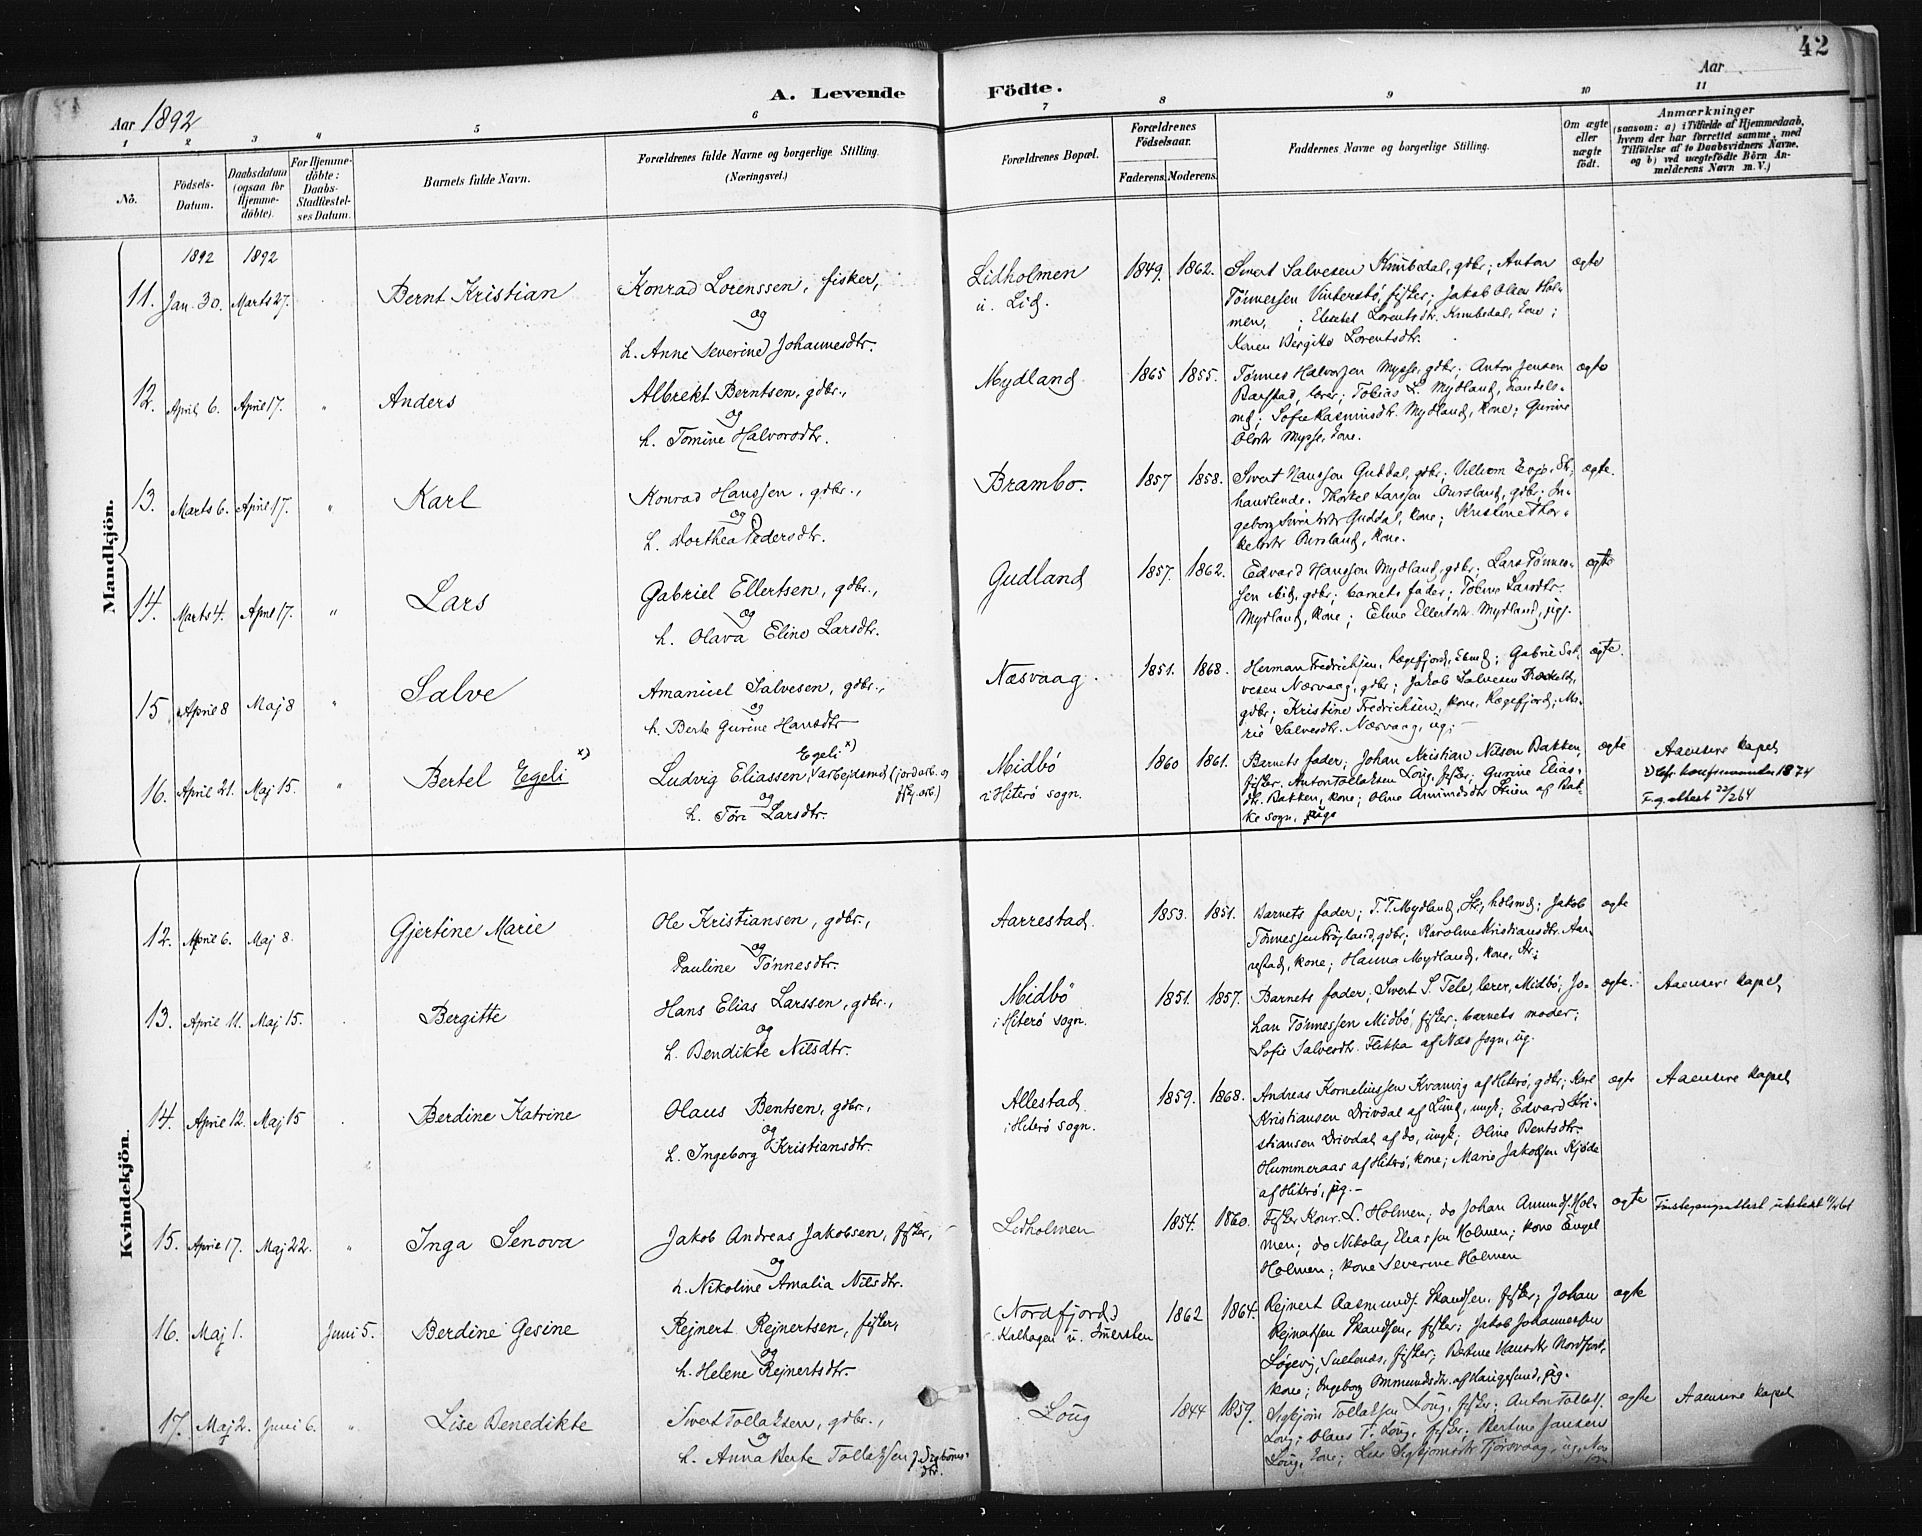 42
Aar 1892
A. Levende Födte.
Aar
1 2 3 4 5 6 7 8 9 10 11
No.
Födsels-Datum.
Daabsdatum (ogsaa for Hjemme-döbte).
For Hjemme-döbte: Daabs-Stadfæstel-ses Datum.
Barnets fulde Navn.
Forældrenes fulde Navne og borgerlige Stilling. (Næringsvei.)
Forældrenes Bopæl.
Forældrenes Födselsaar.
Faderens. Moderens.
Faddernes Navne og borgerlige Stilling.
Om ægte eller uægte födt.
Anmærkninger
(saasom: a) i Tilfælde af Hjemmedaab, hvem der har forrettet samme, med Tilföielse af to Daabsvidners Navne. og b) ved uægtefödte Börn An-melderens Navn m. V.)
Mandkjön.
1892 1892
11. Jan. 30. Marts 27. Bernt Kristian
Konrad Lorenssen, fisker,
og
h. Anne Severine Johannesdtr.
Lidholmen
u. Lid.
1849. 1862.
Sivert Salvesen Kumbedal, gdbr; Anton
Tönnessen Vinterstö, fisker; Jakob Olsen Hol-
men, ; Elisabet Lorentsdtr. Kumbedal, kone;
Karen Bergitte Lorentsdtr.
ægte
12. April 6. April 17. " Anders
Albrekt Berntsen, gdbr.,
og
h. Tomine Halvorsdtr.
Mydland
1865 1855.
Tönnes Halvorsen Mysse, gdbr; Anton Jensen
Barstad, lærer; Tobias L. Mydland, handels-
md; Sofie Rasmusdtr. Mydland, kone; Gurine
Olsdtr Mysse, kone.
ægte
13. Marts 6. April 17. " Karl
Konrad Hanssen, gdbr.,
og
h. Dorthea Pedersdtr.
Brambo.
1857 1858.
Sivert Hanssen Guddal, gdbr; Villum
handlende; Thorkel Larssen Aursland, gdbr; In-
geborg Sivertsdtr Guddal, kone; Kristine Thor-
kelsdtr Aursland, kone.
ægte.
14. Marts 4. April 17. " Lars
Gabriel Ellertsen, gdbr.,
og
h. Olava Eline Larsdtr.
Gudland
1857. 1862.
Edvard Hanssen Mydland, gdbr; Lars Tönnes-
sen ibid, gdbr; barnets fader; Tobine Larsdtr.
Mydland, kone; Eline Ellertsdtr. Mydland, pige.
ægte
15 April 8 Maj 8 " Salve
Amanuel Salvesen, gdbr.,
og
h. Berte Gurine Hansdtr
Næsvaag.
1851. 1868.
Herman Fredriksen, Rægefjord, ; Gabriel Sal-
vesen Næsvaag, gdbr; Jakob Salvesen
gdbr; Kristine Fredriksen, kone, Rægefjord; Ma-
rie Salvesdtr. Næsvaag, ug.
ægte.
16. April 21. Maj 15. " Bertel Egeli x)
Egeli x)
Ludvig Eliassen, arbejdsmd (jordarb. og
fisk. arb)
og
h. Töri Larsdtr.
Midbö
i Hiterö sogn.
1860 1861.
Barnets fader; Johan Kristian Nilsen Bakken,
fisker; Anton Tollaksen Loug, fisker; Gurine Elias-
dtr. Bakken, kone; Oline Amundsdtr Stien af Bak-
ke sogn, pige
ægte
Aaensire kapel
F. g. attest 22/2 64
Kvindekjön.
12. April 6. Maj 8. Gjertine Marie
Ole Kristiansen, gdbr.,
og
Pauline Tönnesdtr.
Aarrestad.
1853. 1851.
Barnets fader; T. T. Mydland, Str, hdlsmd; Jakob
Tönnessen Fröjland, gdbr; Karoline Kristiansdtr. Aar-
restad, kone; Hanna Mydland, kone, Str.
ægte
13. April 11. Maj 15. Bergitte
Hans Elias Larssen, gdbr.,
og
h. Bendikte Nilsdtr.
Midbö
i Hiterö sogn.
1851. 1857.
Barnets fader; Sivert S. Tele, lærer, Midbö; Jo-
han Tönnessen Midbö, fisker; barnets moder;
Sofie Salvesdtr. Flikka af Næs sogn, ug.
ægte.
Aaensire kapel
14. April 12. Maj 15 Berdine Katrine
Olaus Bentsen, gdbr.,
og
h. Ingeborg Kristiansdtr.
Allestad.
i Hiterö sogn.
1859. 1868.
Andreas Korneliussen Kvanvig af Hiterö, gdbr; Karl
Kristiansen Drivdal af Lund, ungk; Edvard Kri-
stiansen Drivdal af do, ungk; Oline Bentsdtr.
Hummeraas af Hiterö, kone; Marie Jakobsen Kjöde
af Hiterö, pig.
ægte
Aaensire kapel
15. April 17. Maj 22. " Inga Senova
Jakob Andreas Jakobsen, fisker,
og
h. Nikoline Amalia Nilsdtr.
Lidholmen
1854. 1860.
Fisker Konr. L. Holmen; do Johan Amundsf. Hol-
men; do Nikolaj Eliassen Holmen; kone Engel
Holmen; kone Severine Holmen
ægte
16. Maj 1. Juni 5. Berdine Gesine
Rejnert Rejnertsen, fisker,
og
h. Helene Rejnertsdtr.
(Nordfjord)
Kalhagen u.
1862 1864.
Rejnert Aasmunds. Skandsen, fisker; Johan
Rejnertsen Skandsen, fisker; Jakob Johannessen
Lögevig, , fisker; Bertine Hansdtr Nordfjord,
kone; Ingeborg Ommundsdtr. af Haugesund, pig.
ægte
17. Maj 2. Juni 6. " Lise Benedikte
Sivert Tollaksen, gdbr.,
og
h. Anna Berte Tollaksen f. Sigbörns-
dtr.
Loug
1844 1859.
Sigbjörn Tollaksen Loug, fisker; Anton Tollakf.
Loug; Olaus T. Loug, fisker; Bertine Jansen
Loug, kone; Lise Sigbjörnsdtr Tjörsvaag, ug,
ægte
Aaensire kapel